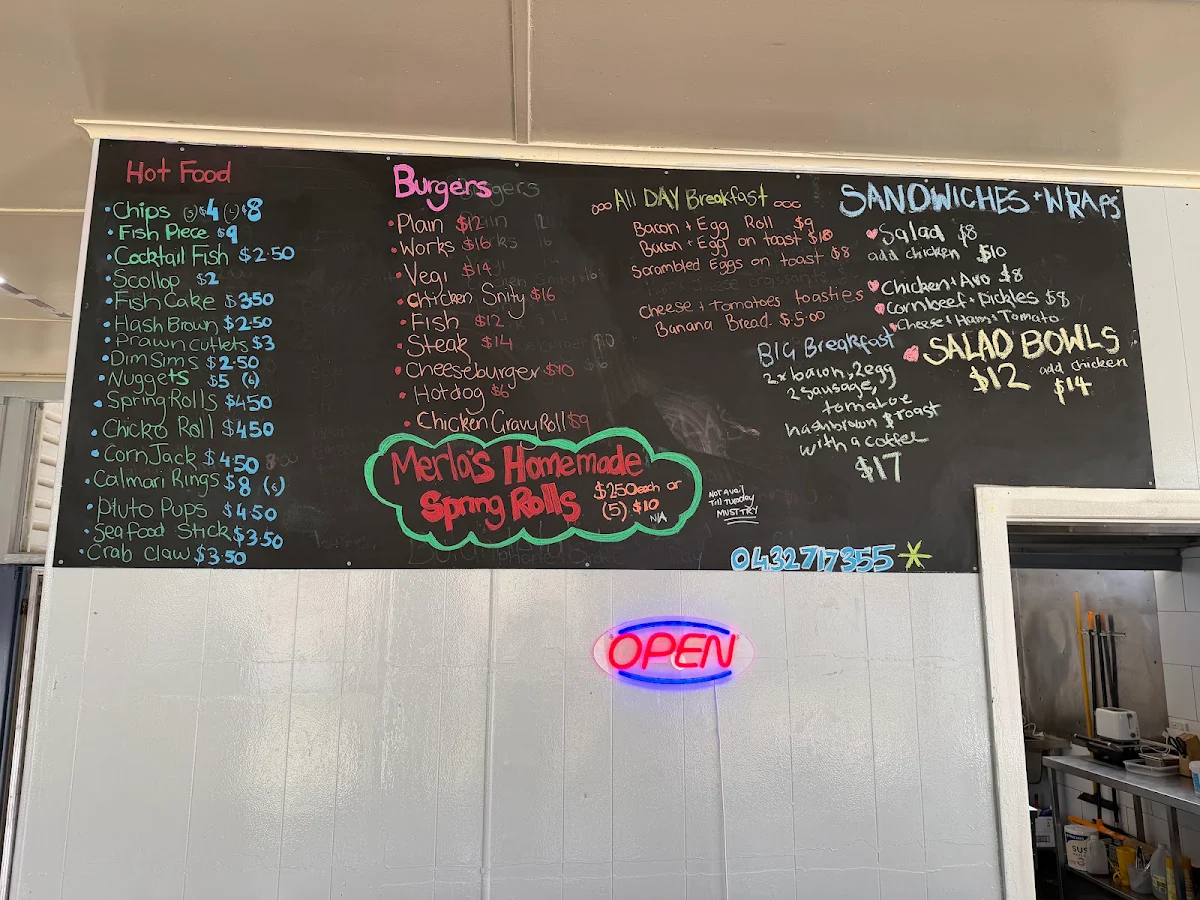 Hot Food
• Chips (S) $4 (L) $8
• Fish Piece $9
• Cocktail Fish $2.50
• Scollop $2
• Fish Cake $350
• Hash Brown $2.50
• Prawn Cutlets $3
• Dim Sims $2.50
• Nuggets $5 (6)
• Spring Rolls $450
• Chicko Roll $450
• Corn Jack $4.50
• Calmari Rings $8 (6)
• Pluto Pups $4.50
• Seafood Stick $3.50
• Crab Claw $3.50
Burgers
• Plain $12
• Works $16
• Vegi $14
• Chicken Snity $16
• Fish $12
• Steak $14
• Cheeseburger $10
• Hotdog $6
Chicken Gravy Roll $9
Merla's Homemade
Spring Rolls
$250 each or
(5) $10
N/A
NOT Avail
Till Tuesday
MUST TRY
All DAY Breakfast
Bacon + Egg Roll $9
Bacon + Egg on toast $10
Scrambled Eggs on toast $8
Cheese + Tomatoes toasties
Banana Bread $5.00
BIG Breakfast
2x bacon, 2egg
2 sausage,
tomatoe
hashbrown & toast
with a coffee
$17
SANDWICHES + WRAPS
Salad $8
add chicken $10
Chicken + Avo $8
Cornbeef + Pickles $8
Cheese + Ham + Tomato
SALAD BOWLS
$12 add chicken
$14
0432717355
OPEN